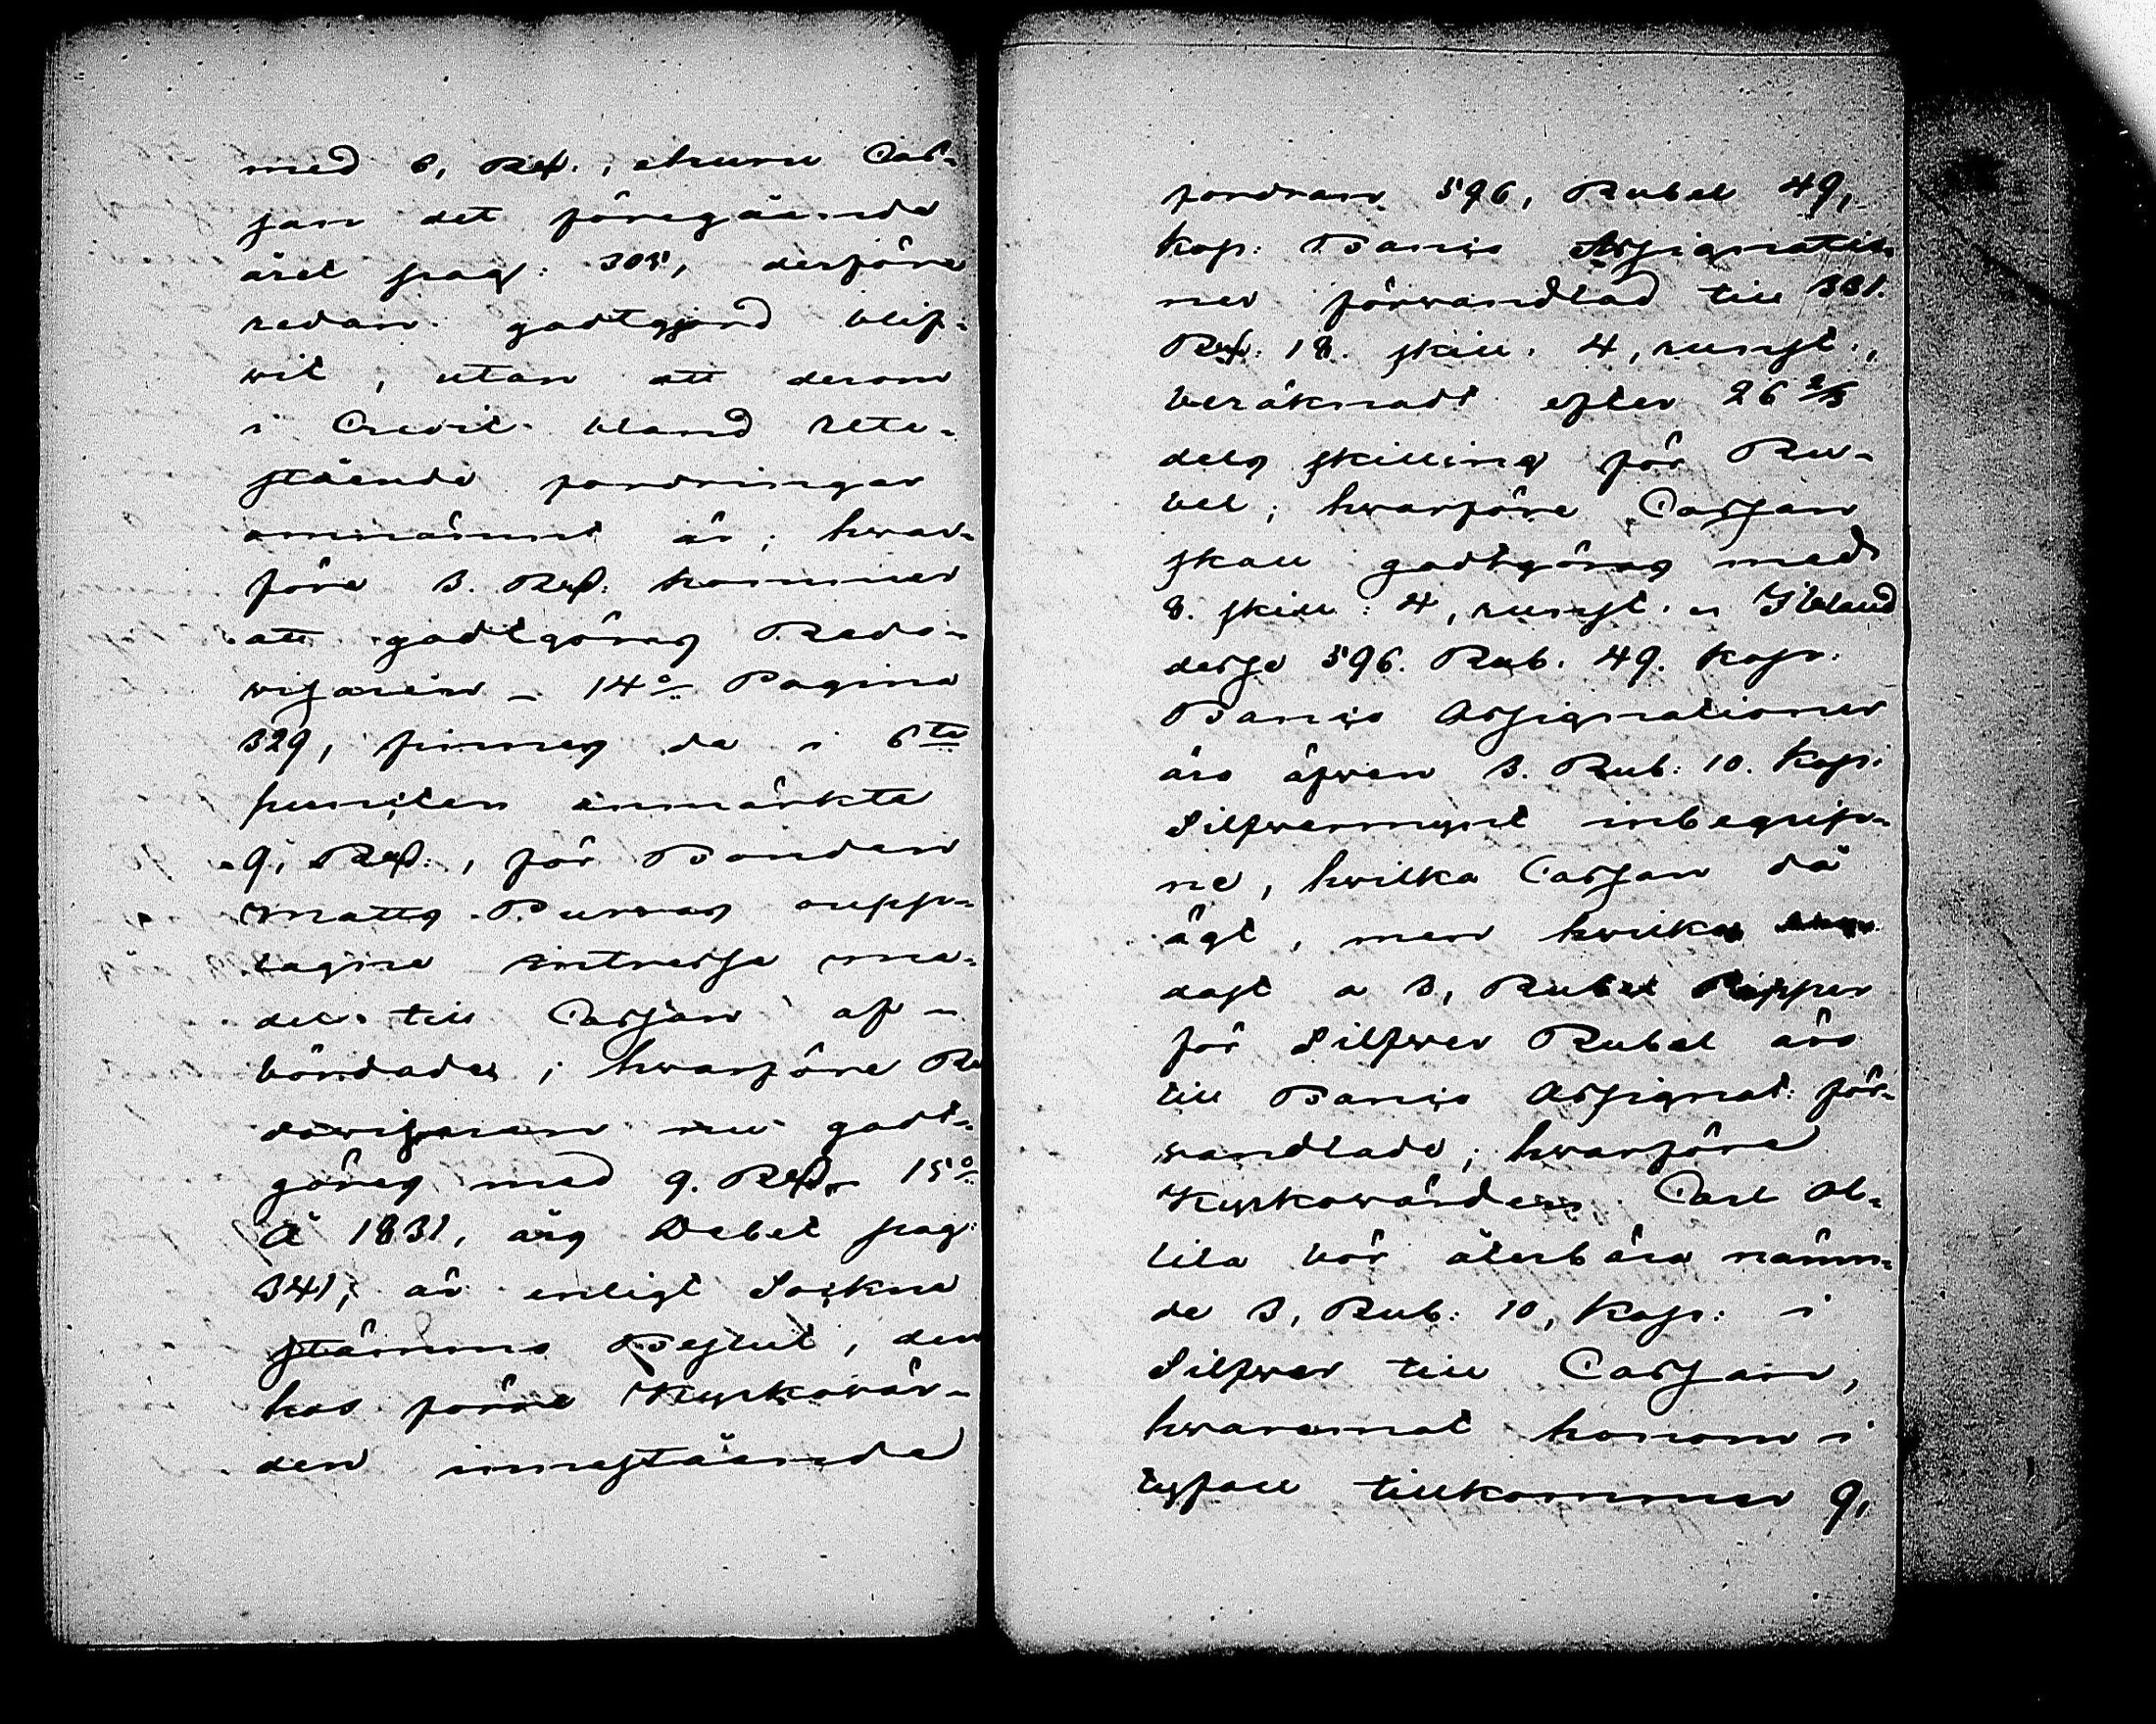 med 6, Rd. , ehuru Cas¬
san det föregående
året pag: 305, derföre
redan godtgjord blif¬
vit , utan att derom
i Credit bland ute¬
stående fordringar
omnämnt är; hvar¬
före 3. Rd. kommer
att godtgöras Redo¬
visaren – 14:o Pagina
329, finnes de i 6:te
puncten anmärkta
9, Rd. , för Bonden
Matts Purras upp¬
tagne intresse me¬
del till Cassan af¬
bördades ; hvarföre Re
dovisaren nu godt¬
göres med 9. Rd. 15:o
Å 1831, års Debet pag:
341; är enligt Sockne
stämmo Beslut, den
hos förre Kyrkovär¬
den innestående
fordran 596, Rubel 49,
kop: Banco Assignatio
ner förvandlad till 331.
Rd: 18. skill. 4, runst:,
beräknadt efter 26 2/3
dels skilling för Ru¬
bel; hvarföre Cassan
skall godtgöras med
8. skill: 4, runst. Ibland
desse 596. Rub. 49. kop:
Banco Assignationer
äro äfven 3. Rub: 10. kop:
Silfvermynt inbegrip¬
ne, hvilka Cassan då
ägt, men hvilka
dast a 3, Rubel Papper
för Silfver Rubel äro
till Banco Assignat: för¬
vandlade; hvarföre
Kyrkovärden Carl Ol¬
lila bör återbära nämn¬
de 3, Rub: 10, kop: i
Silfver till Cassan,
hvaremot honom i
tysfall tillkommer 9,